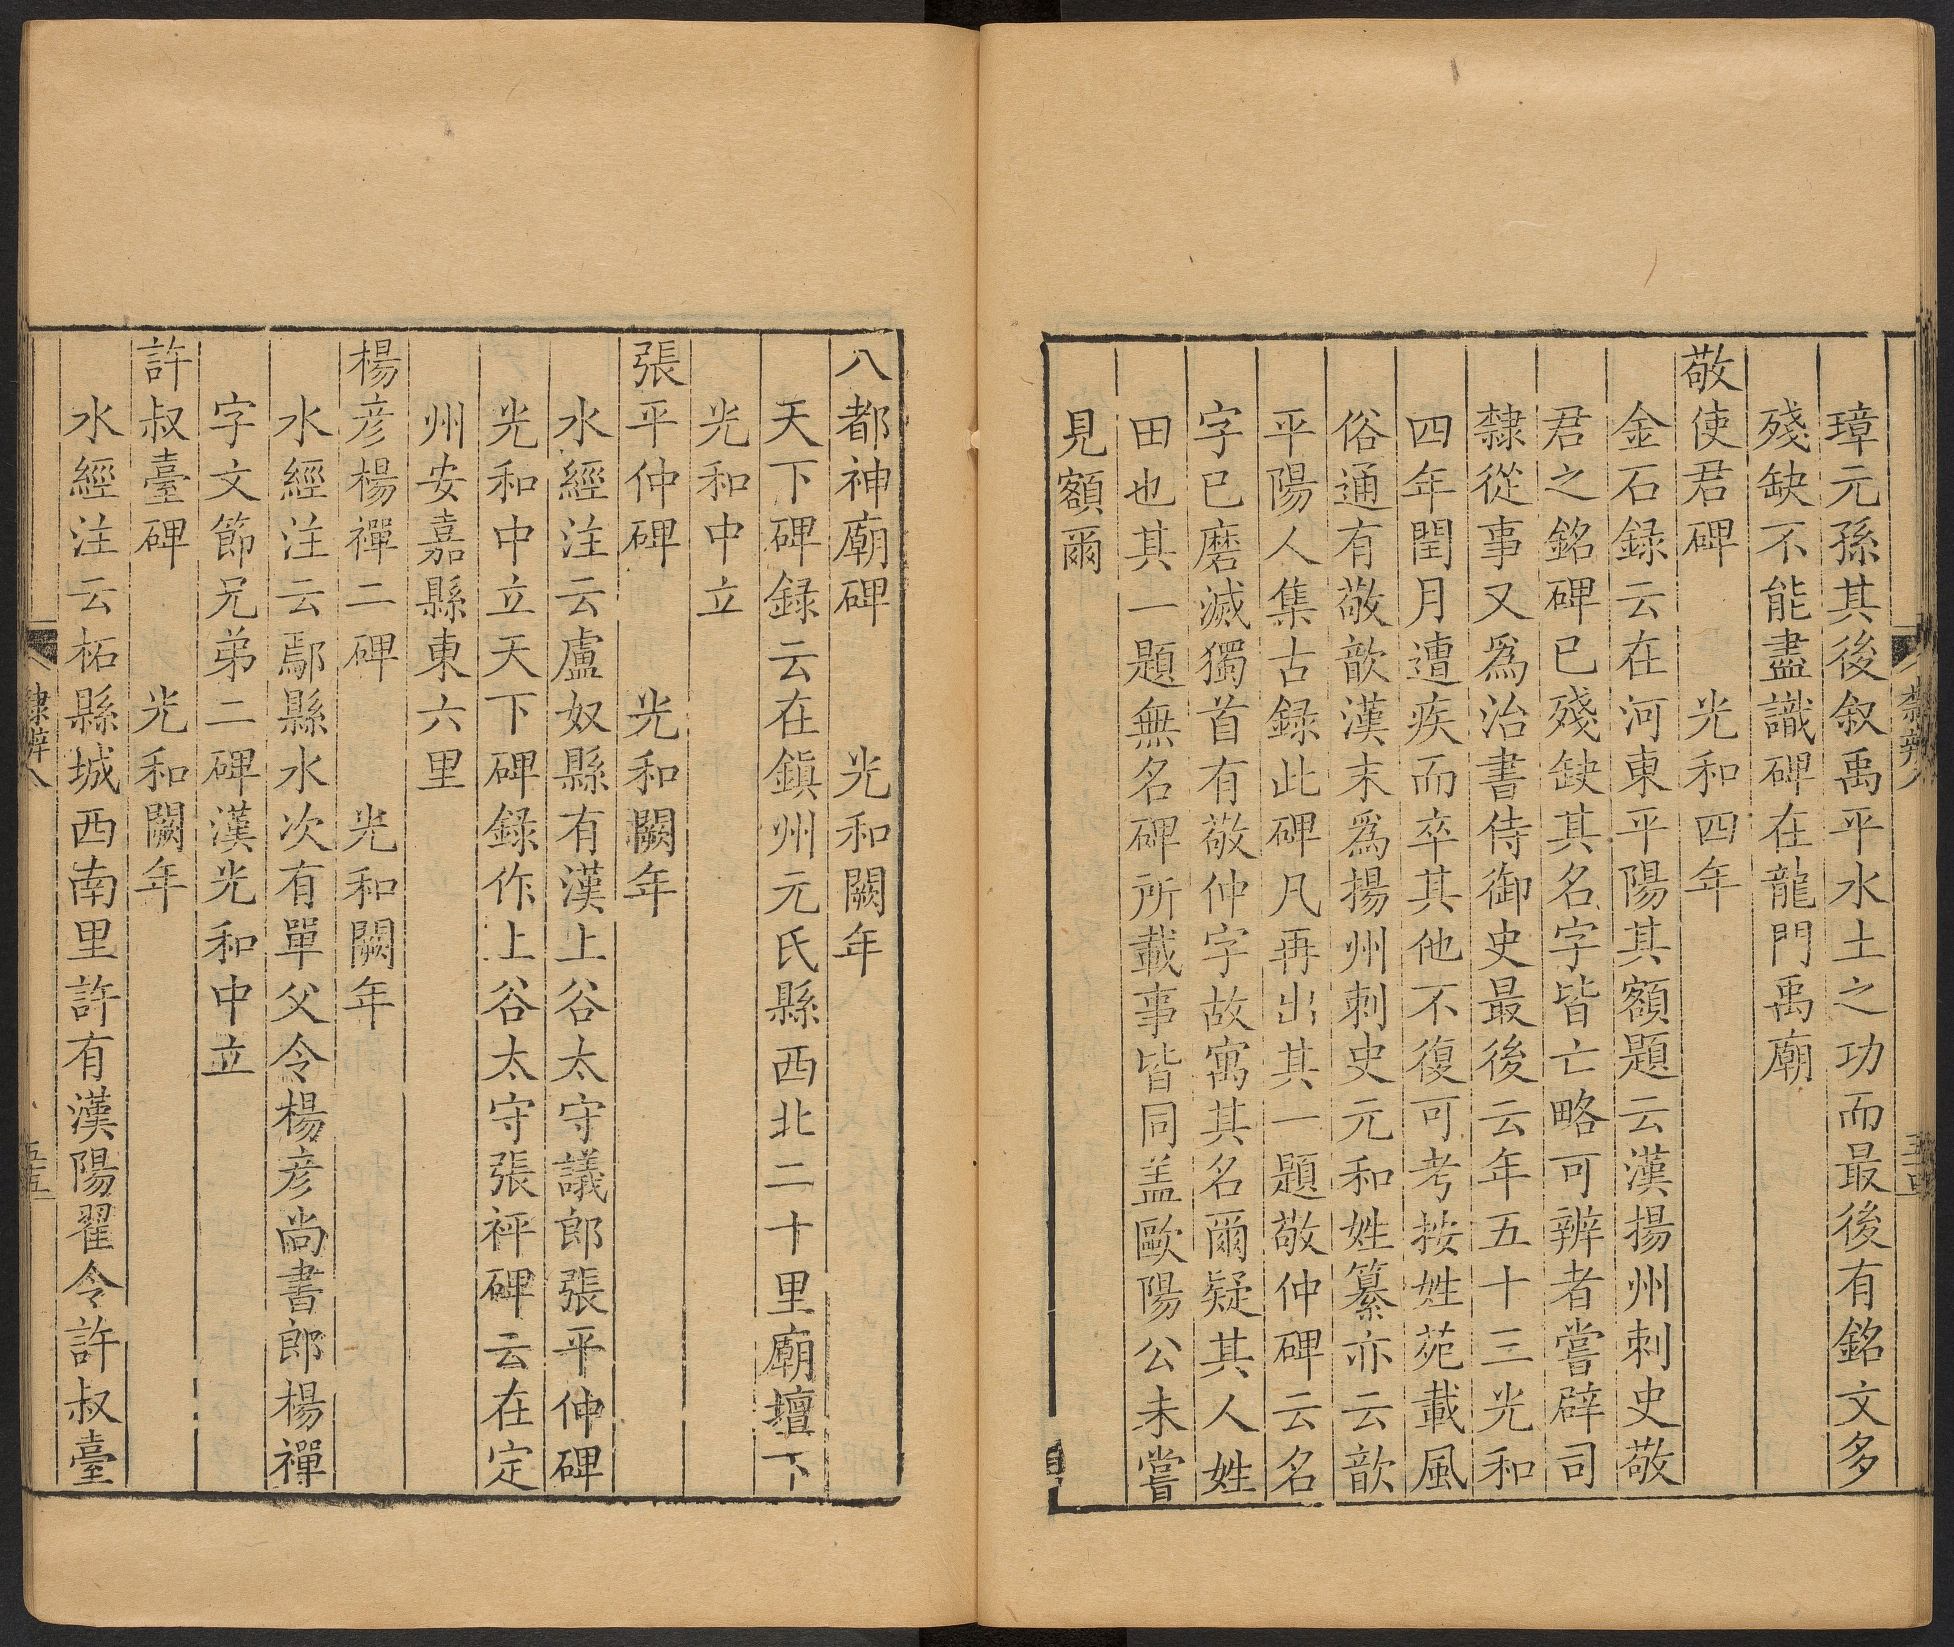 璋元孫其後叙禹平水土之功而最後有銘文多
殘缺不能盡識碑在龍門禹廟
敬使君碑　光和四年
金石録云在河東平陽其額題云漢揚州刺史敬
君之銘碑已殘缺其名字皆亡略可辨者嘗辟司
隸從事又爲治書侍御史最後云年五十三光和
四年閏月遭疾而卒其他不復可考按姓苑載風
俗通有敬歆漢末爲揚州刺史元和姓纂亦云歆
平陽人集古録此碑凡再出其一題敬仲碑云名
字已磨滅獨首有敬仲字故寓其名爾疑其人姓
田也其一題無名碑所載事皆同盖歐陽公未嘗
見額爾
八都神廟碑　光和闕年
天下碑録云在鎮州元氏縣西北二十里廟壇下
光和中立
張平仲碑　光和闕年
水經注云盧奴縣有漢上谷太守議郎張平仲碑
光和中立天下碑錄作上谷太守張祚碑云在定
州安嘉縣東六里
楊彦楊禪二碑　光和闕年
水經注云鄢縣水次有單父令楊彦尚書郎楊禪
字文節兄弟二碑漢光和中立
許叔臺碑　光和闕年
水經注云柘縣城西南里許有漢陽翟令許叔臺
隸辨八